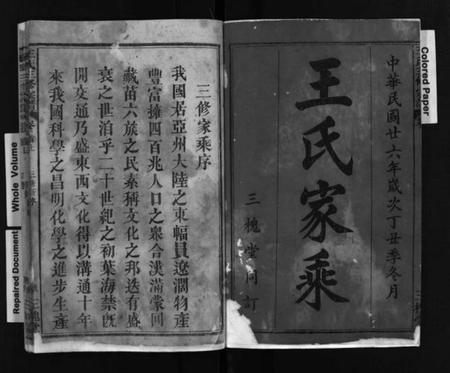 中華民國廿六年歲次丁丑季冬月
王氏家乘
三槐堂同訂
三修家乘序
我國居亞州大陸之東幅員遼濶物產
豐富擁四百兆人口之眾合漢滿蒙回
藏苗六族之民素稱文化之邦迭有盛
衰之世洎乎二十世紀之初葉海禁旣
開交通乃盛東西文化得以溝通十年
來我國科學之昌明化學之進步生產
Colored Paper
Whole Volume
Repaired Document